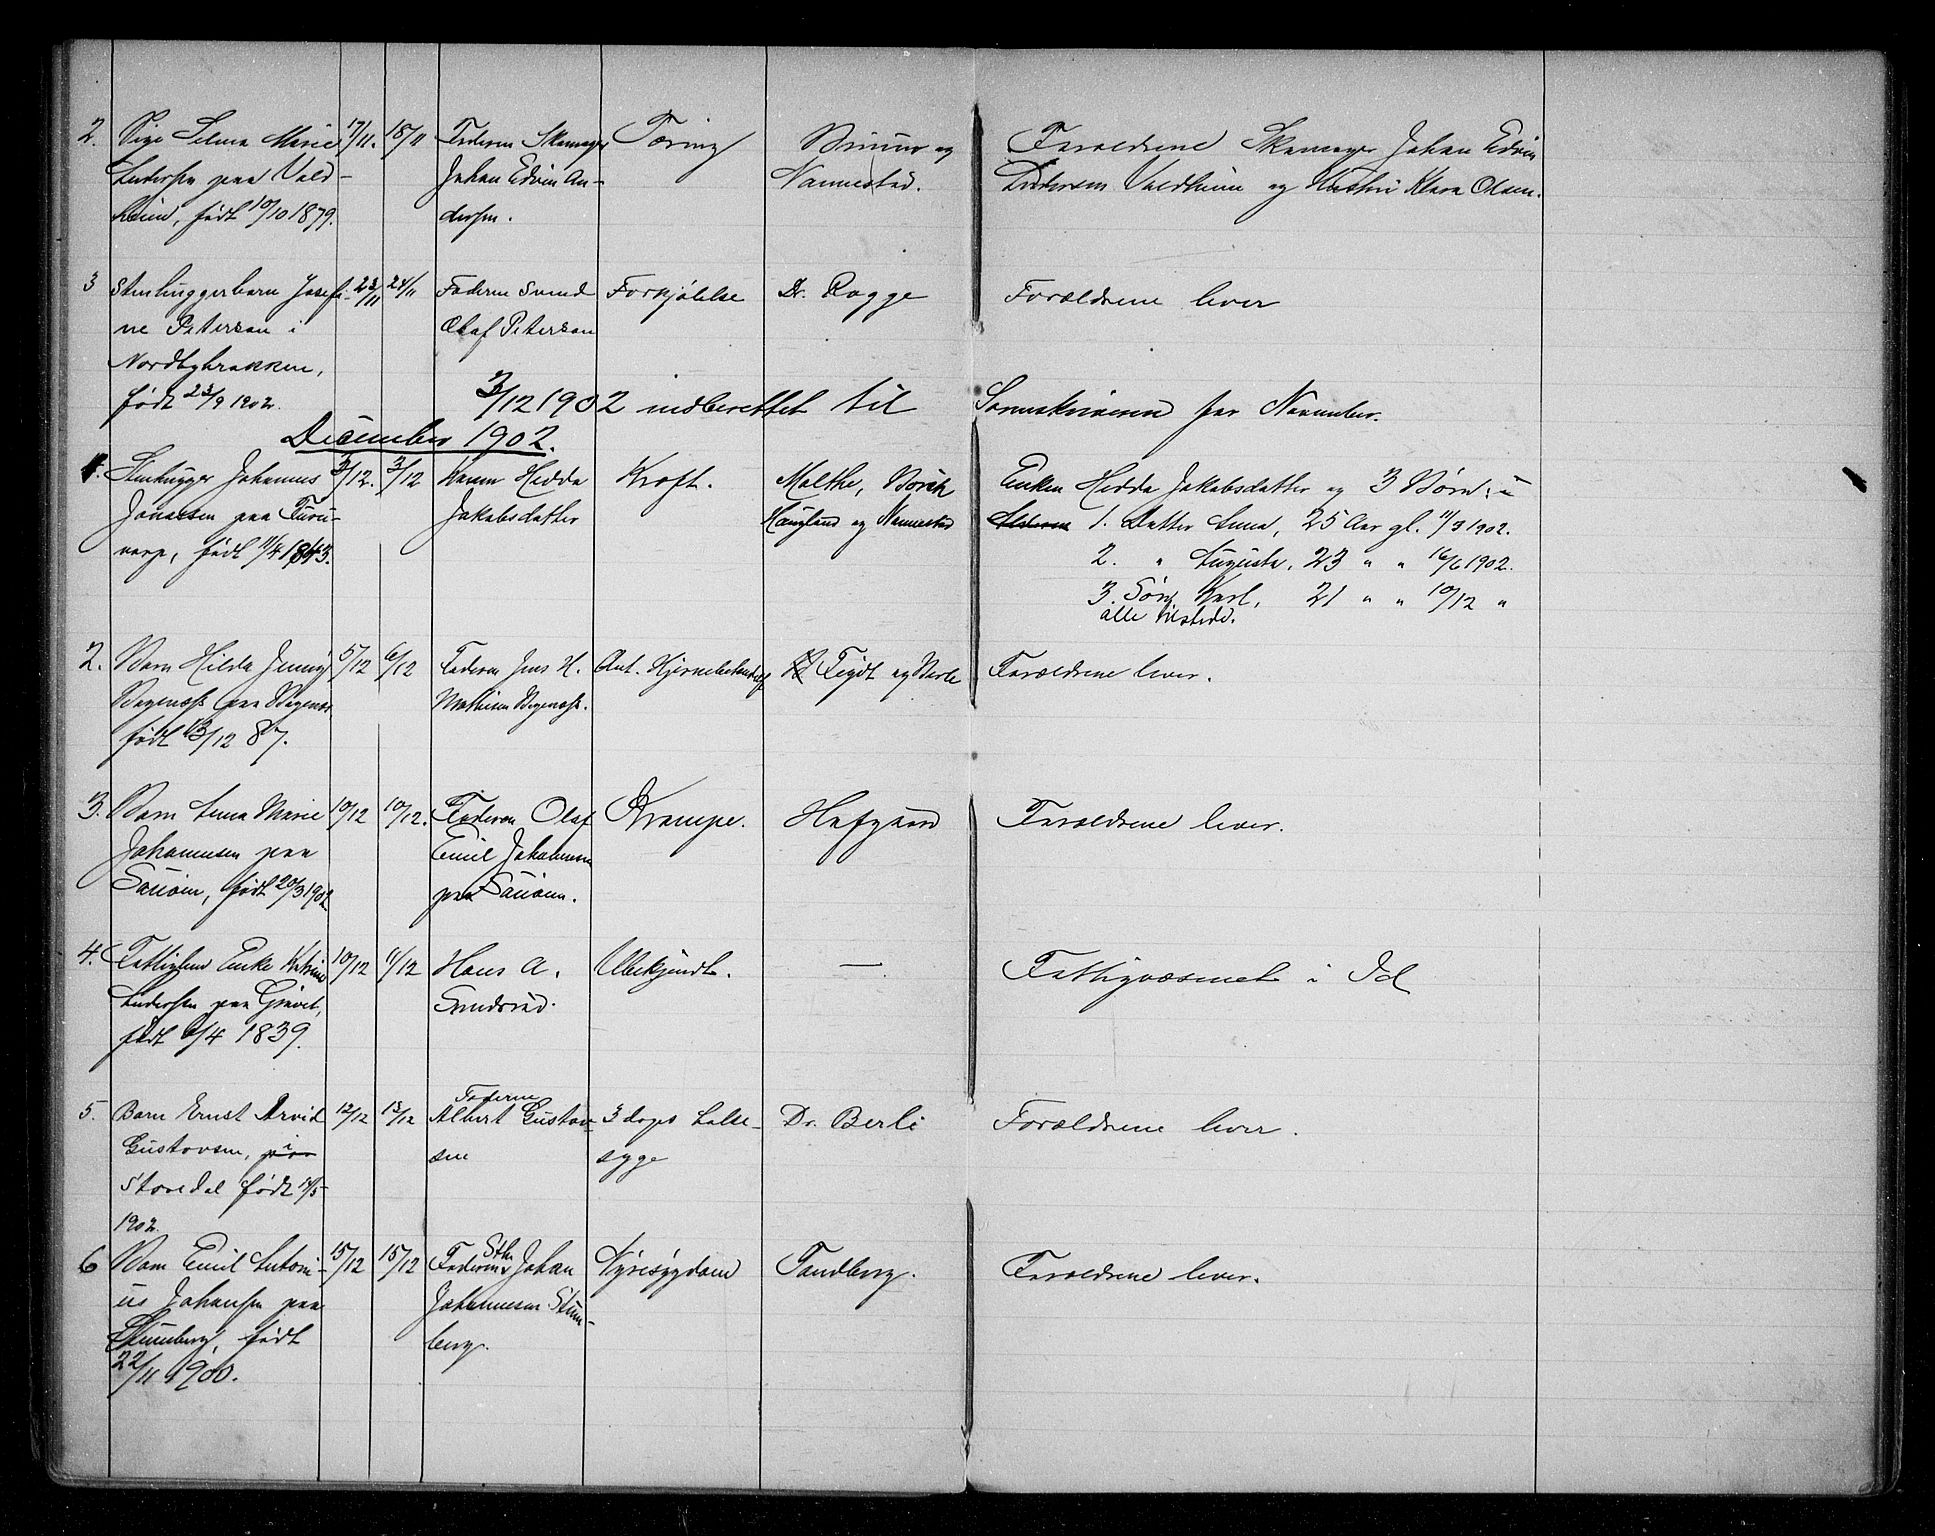 2. Pige Selma Marie 17/11. 18/11 Faderen Skomager Tæring Brinur og Forældrene Skomager Johan Edvin
Andersen paa Vald- Johan Edvin An- Nannestad. Andersen Valdheim og Hustru Klara Olsen.
heim, født 10/10 1879. dersen.
3 Stenhuggerbarn Josefi- 23/11 24/11 Faderen Svend Forkjølelse Dr. Rogge Forældrene lever
ne Peterson i Olaf Peterson
Nordbybrakken,
født 23/9 1902.
3/12 1902 indberettet til Sorenskriveren for November.
December 1902.
1. Stenhugger Johannes 3/12. 3/12 Konen Hedda Kræft. Malthe, Enken Hedda Jakobsdatter og 3 Børn:
Jonassen paa Furu- Jakobsdatter Haugland og Nannestad 1. Datter Anna, 25 Aar gl. 11/3 1902.
varp, født 11/4 1843. 2. " Augusta, 23 " " 16/6 1902.
3. Søn Karl, 21 " " 10/12 "
alle tilstede.
2. Barn Hilda Jenny 5/12 6/12 Faderen Jens H. Ant. Hjernebetændelse Figdt og Berle Forældrene lever.
Bogenæss paa Bogenæs Mathisen Bogenæss.
født 13/12 87.
3. Barn Anna Marie 10/12 10/12. Faderen Olaf Krampe. Hafgaard Forældrene lever.
Johannesen paa Emil Johannesen
Sauøen, født 20/3 1902 paa Sauøen.
4. Fattiglem Enke Katrine 10/12 11/12 Hans A. Ubekjendt. — Fattigvæsenet i Id
Andersen paa Gravet, Sundsrød.
født 6/4 1839.
5. Barn Ernst Arvid 12/12 13/12 Faderen Albert Gustav- 3 dages Halse- Dr. Berli Forældrene lever.
Gustavsen, i sen syge
Storedal født 14/5
1902.
6 Barn Emil Antoni- 15/12 15/12 Faderen Sth. Johan Nyresygdom Tandberg. Forældrene lever.
us Johansen paa Johannesen Stum-
Stumberg, født berg.
22/11 1900.